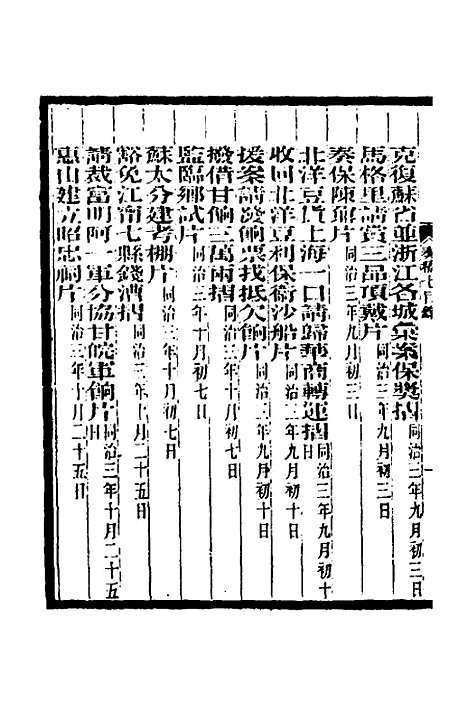 克復蘇省並浙江各城彙案保奬摺同治三年九月初三日
馬格里請賞三品頂戴片同治三年九月初三日
奏保陳鼐片同治三年九月初三日
北洋豆貨上海一口請歸華商轉運摺同治三年九月初十日
收回北洋豆利保衞沙船片同治三年九月初十日
援案請發餉票找抵欠餉片同治三年九月初十日
撥借甘餉三萬兩摺同治三年十月初七日
監臨鄉試片同治三年十月初七日
蘇太分建考棚片同治三年十月初七日
豁免江甯七縣錢漕摺同治三年十月二十五日
請裁富明阿一軍分協甘皖軍餉片同治三年十月二十五日
惠山建立昭忠祠片同治三年十月二十五日